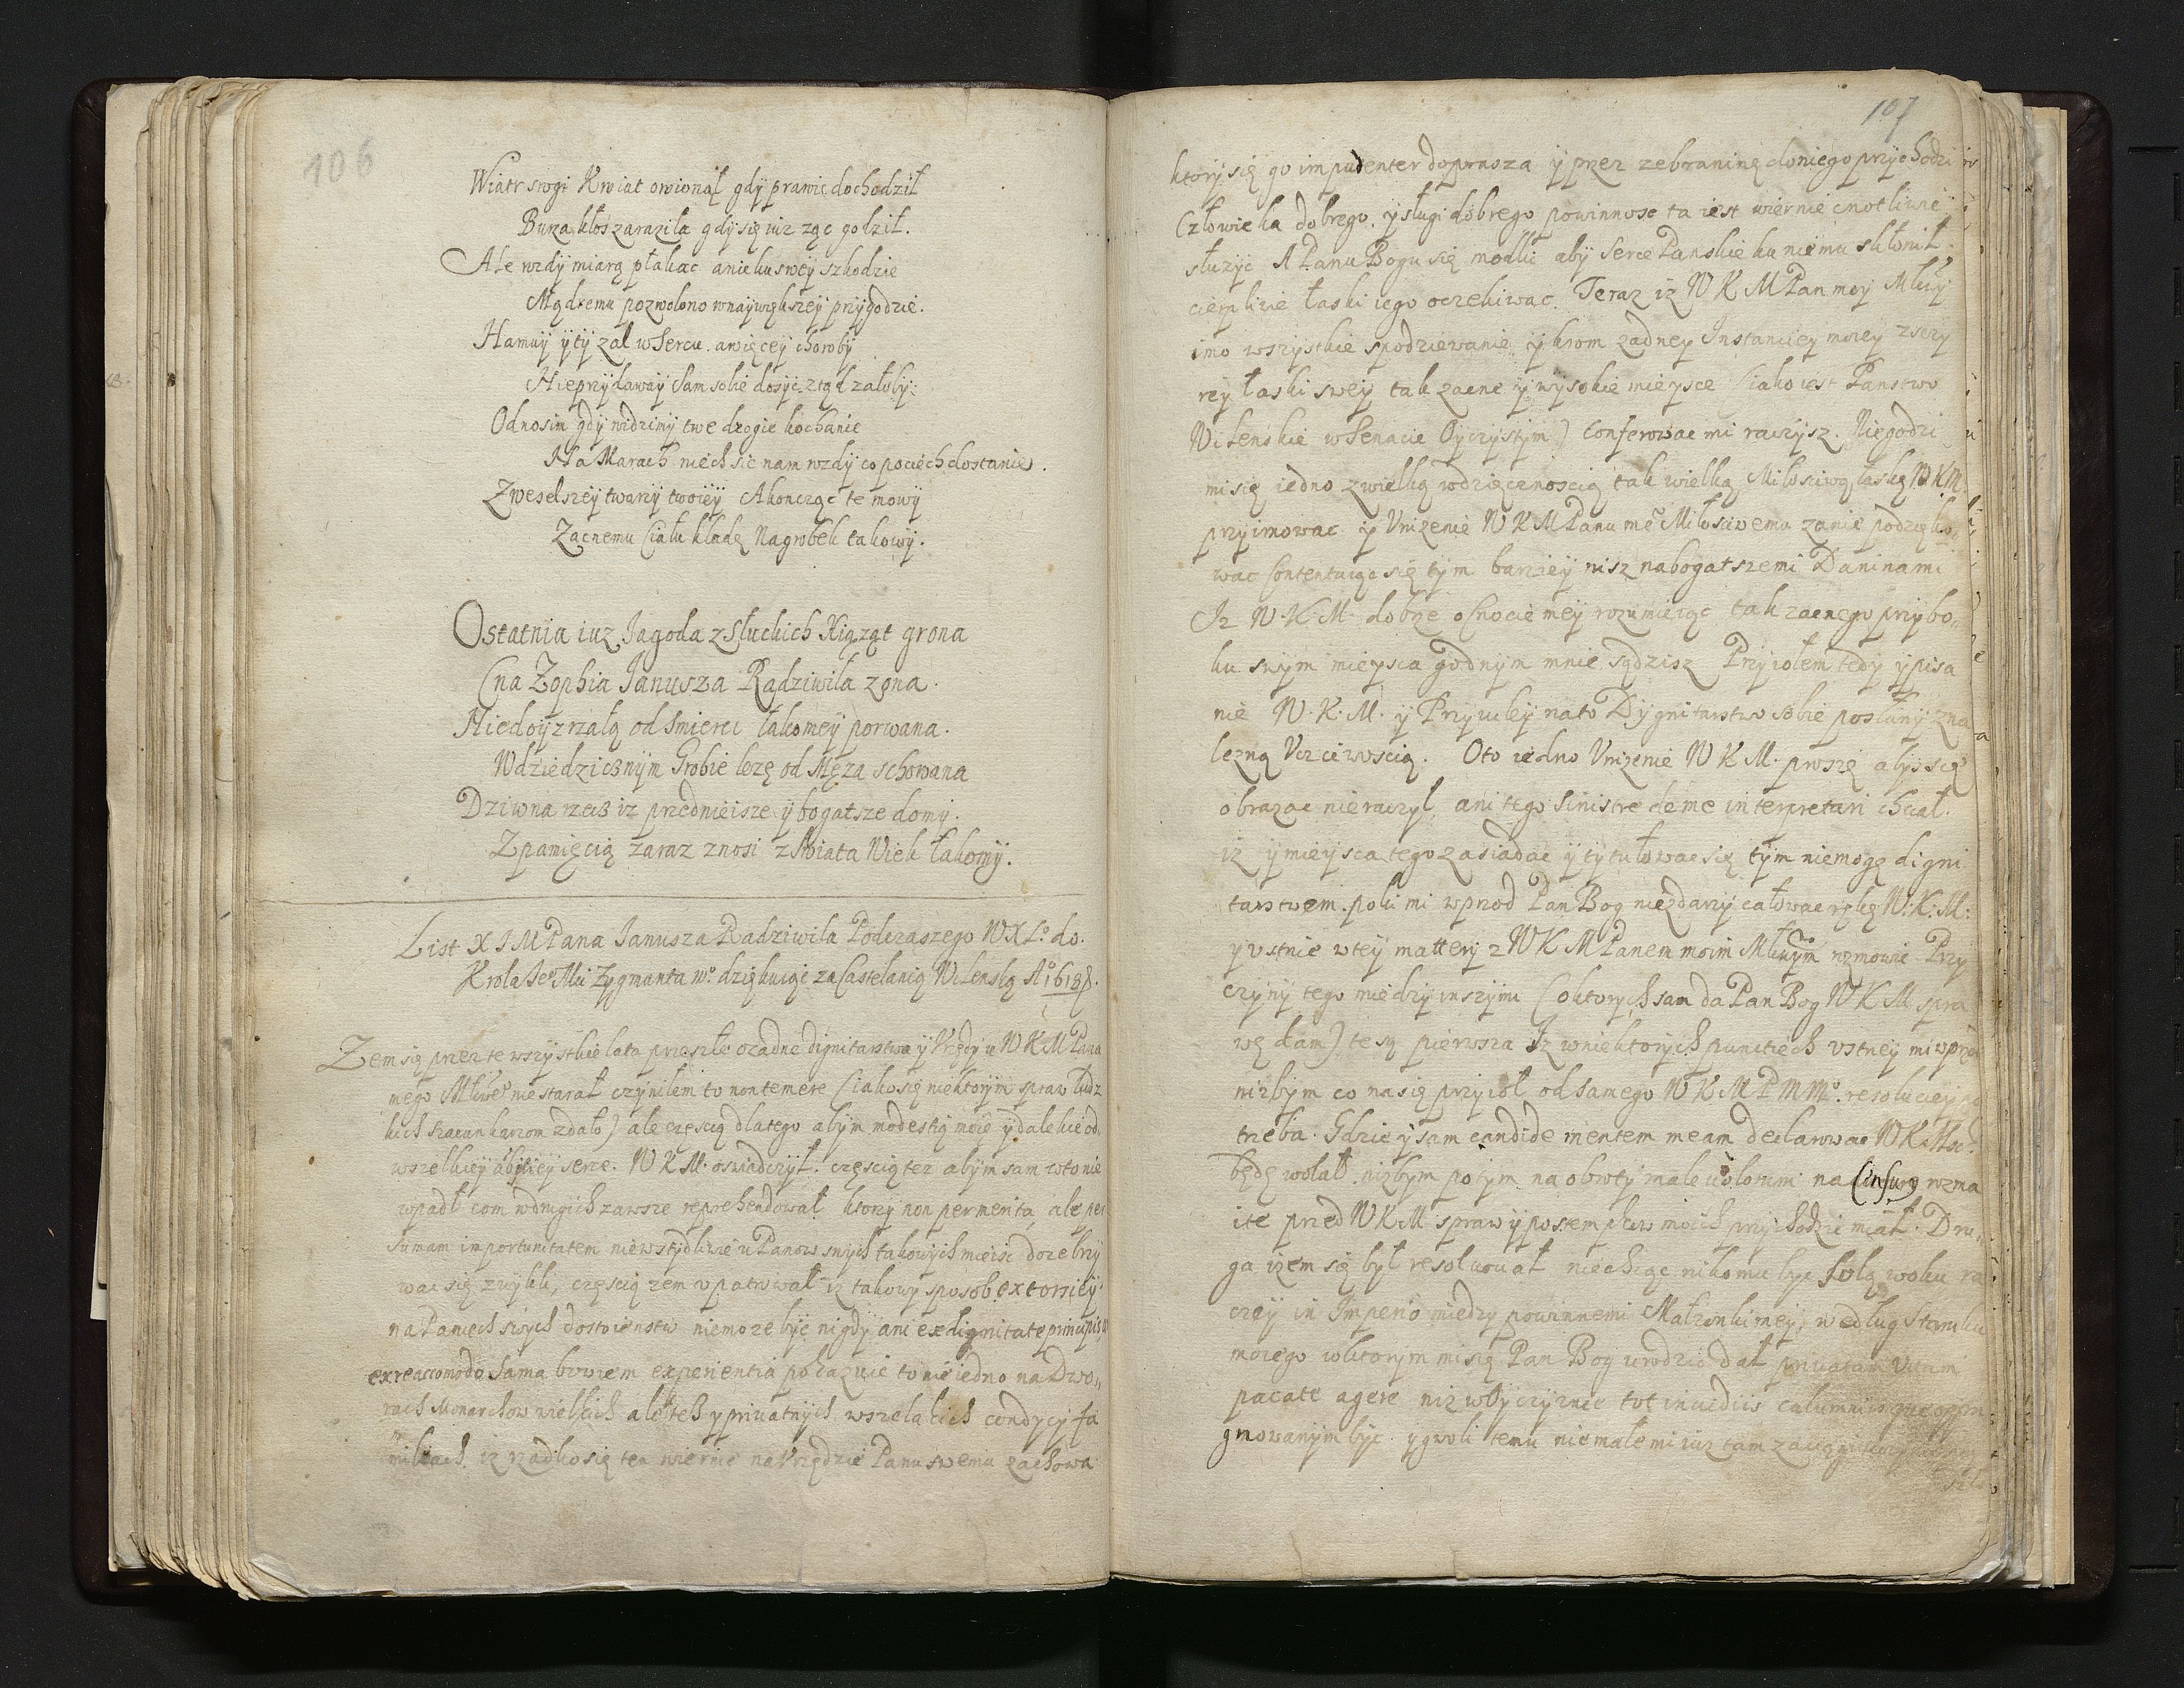 106
Wiatr srogi Kwiat owionął gdÿ prawie dochodził
Burza kłos zaraziła gdÿ się iuz ząc godził.
Ale wzdÿ miarą płakac anie ku swéÿ szkodzie
Mądremu pozwolono wnaÿwiększeÿ przÿgodzie.
Hamuÿ ÿ tÿ zal w Sercu. a więceÿ chorobÿ
Nieprzÿdawaÿ Sam sobie dosÿc ztąd załobÿ:
Odnosim gdÿ widzimÿ twe drogie kochanie
Na Marach niech sie nam wzdÿ co pociech dostanie.
Zweselszeÿ twarzÿ twoieÿ A koncząc te mowÿ
Zacnemu Ciału kładę Nagrobek takowÿ.
Ostatnia iuz Jagoda z Słuckich Xiąząt grona
Cna Zophia Janusza Radziwila zona.
Niedoÿzrzałą od Smierci łakomeÿ porwana.
W dziedzicznÿm Grobie lezę od Męza schowana
Dziwna rzecz iz przednieisze ÿ bogatsze domÿ.
Zpamięcią zaraz znosi z Swiata Wiek łakomÿ.
List X I M Pana Janusza Radziwila Podczaszego W X Lº. do.
Krola Jeº Mci Zygmunta wº. dziękuiąc za Castelanią Wilenską Aº 1618.
Zem się przez te wszÿstkie lata przeszłe o zadne dignitarstwa ÿ Vrzędÿ u W K M Pana
mego Młiweº nie starał czÿniłem to non temere (iako się niektorÿm spraw ludz
kich szacunkarzom zdało) ale częscią dlatego abÿm modestią moię ÿ dalekie od
wszelkieÿ ambitieÿ serce. W K M. oswiadczÿł. częscią tez abÿm sam w to nie
wpadł com w drugich zawsze reprehendował ktorÿ non per merita, ale per
sumam importunitatem niewstÿdliwie u Panow swÿch takowÿch mieisc dozebrÿ
wac się zwÿkli, częscią zem vpatrował iz takowÿ sposob extorsieÿ
na Paniech swÿch dostoienstw niemoze bÿc nigdÿ ani ex dignitate principis
ex re accomodo Sama bowiem experientia pokazuie to nie iedno na Dwo„
rach Monarchow wielkich ale tesz ÿ priuatnÿch wszelakich condÿcÿ fa
miliach. iz rzadko się ten wiernie na Vrzędzie Panu swemu zachowa
107
ktorÿ się go impudenter doprasza ÿ przez zebraninę do niego przÿchodzi
Człowieka dobrego. ÿ sługi dobrego powinnosc ta iest wiernie cnotliwie
słuzÿc A Panu Bogu się modlic abÿ Serce Panskie ku niemu skłonił.
cierpliwie łaski iego oczekiwac. Teraz iz W K M Pan moÿ Młciwÿ
imo wszÿstkie spodziewanie ÿ krom zadneÿ Instancieÿ moieÿ zsczÿ
reÿ łaski sweÿ tak zacne ÿ wÿsokie mieÿsce (iako iest Panstwo
Wilenskie w Senacie Oÿczÿstÿm) conferowac mi raczÿsz. Niegodzi
mi się iedno z wielką wdzięcznoscią tak wielką Miłosciwą łaskę W K M
przÿimowac ÿ Vnizenie W K M Panu mẽ Miłosciwemu zanie podzięko„
wac Contentuiąc się tÿm barzieÿ nisz nabogatszemi Daninami
Iz W. K. M. dobrze o Cnocie meÿ rozumieiąc tak zacnego przÿ bo„
ku swÿm mieÿsca godnÿm mnie sądzisz Przÿiołem tedÿ ÿ pisa
nie W. K: M. ÿ Przÿwileÿ na to Dÿgnitarstwo sobie posłanÿ zna
lezną Vczciwoscią. Oto iedno Vnizenie W K M. proszę abÿs się
obrazac nie raczył, ani tego Sinistre de me interpretari chciał.
iz ÿ mieÿsca tego zasiadac ÿ tÿtułowac się tÿm niemogę digni
tarstwem. poki mi wprzod Pan Bog niezdarzÿ całowac rękę W: K: M:
ÿ vstnie w teÿ matterÿ z W K M Panem moim Młciwÿm rozmowic Przÿ
czÿnÿ tego miedzÿ inszÿmi (o ktorÿch sam da Pan Bog W K M spra
wę dam) te są pierwsza Iz w niektorÿch punctiech vstneÿ mi wprzod
nizbÿm co na się przÿioł od samego W K M P M Mº. resolucieÿ
trzeba. Gdzie ÿ sam candide mentem meam declarowac W K Msci
będę wolał. nizbÿm potÿm na obrotÿ maleuolorum na Censurę rozma
ite przed W K M. spraw ÿ postempkow moich przÿchodzic miał. Dru„
ga izem się bÿł resoluował niechcąc nikomu bÿc solą woku ra
czeÿ in Imperio miedzy powinnemi Małzonki meÿ, według Stanu
moiego w ktorym mi się Pan Bog urodzic dał priuatam vitam
pacate agere niz w Oÿczÿznie tot inuidiis calumniisque oppu
gnowanÿm bÿc. ÿ gwoli temu niemałemi iuz tam zaciągnio